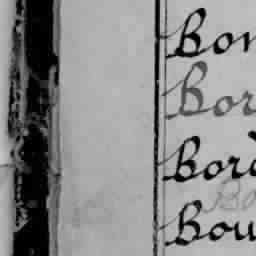 Bon
Bor
Bord
Bo
Bou